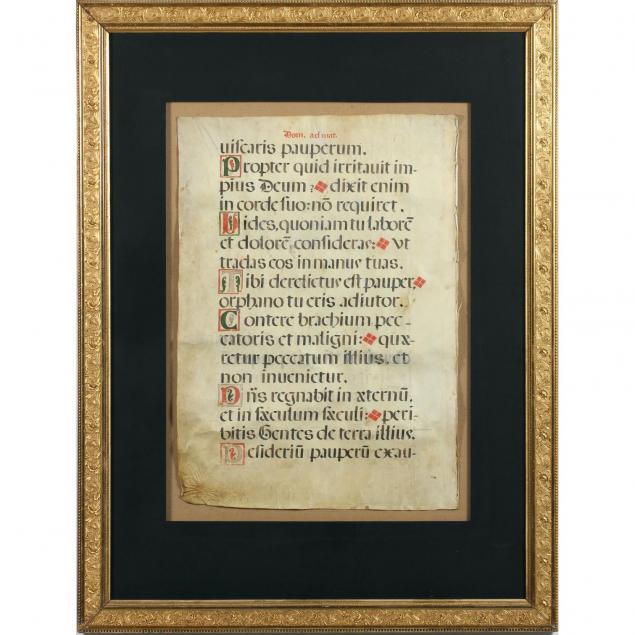 Dom. ad mat.
uiscaris pauperum.
Propter quid irritauit im-
pius Deum? dixit enim
in corde suo: nõ requiret.
Vides, quoniam tu laborẽ
et dolorẽ consideras: vt
tradas eos in manus tuas.
Tibi derelictus est pauper,
orphano tu eris adiutor.
Contere brachium pec-
catoris et maligni: quæ-
retur peccatum illius, et
non inuenietur.
Dñs regnabit in æternũ,
et in sæculum sæculi: peri-
bitis Gentes de terra illius.
Desideriũ pauperũ exau-